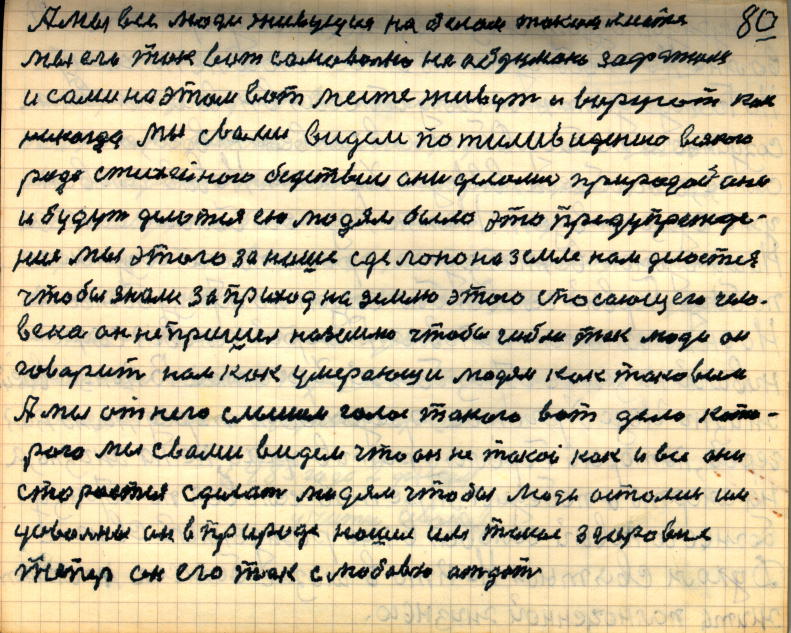 80
А мы все люди живущия на белом таком листя
мы его так вот самовольно на обдиманы захватили
и сами на этом вот месте живут и воруют как
никогда мы свами видем по тиливидению всякого
рода стихейного бедствии они делолис природой они
и будут делотся ею людям было это предупрежде-
ния мы этого за наше сделоно на земле нам делоется
чтобы знали за приход на землю этого спосающего чело-
века он не пришел на землю чтобы гибли так люди он
говарит нам как умерающи людям как таковым
А мы от него слышем голос такого вот дело кото-
рого мы свами видем что он не такой как и все они
стороется сделат людям чтобы люди остолис им
доволны он в природе нашел им такое здоровия
тепер он его так с любовю отдот